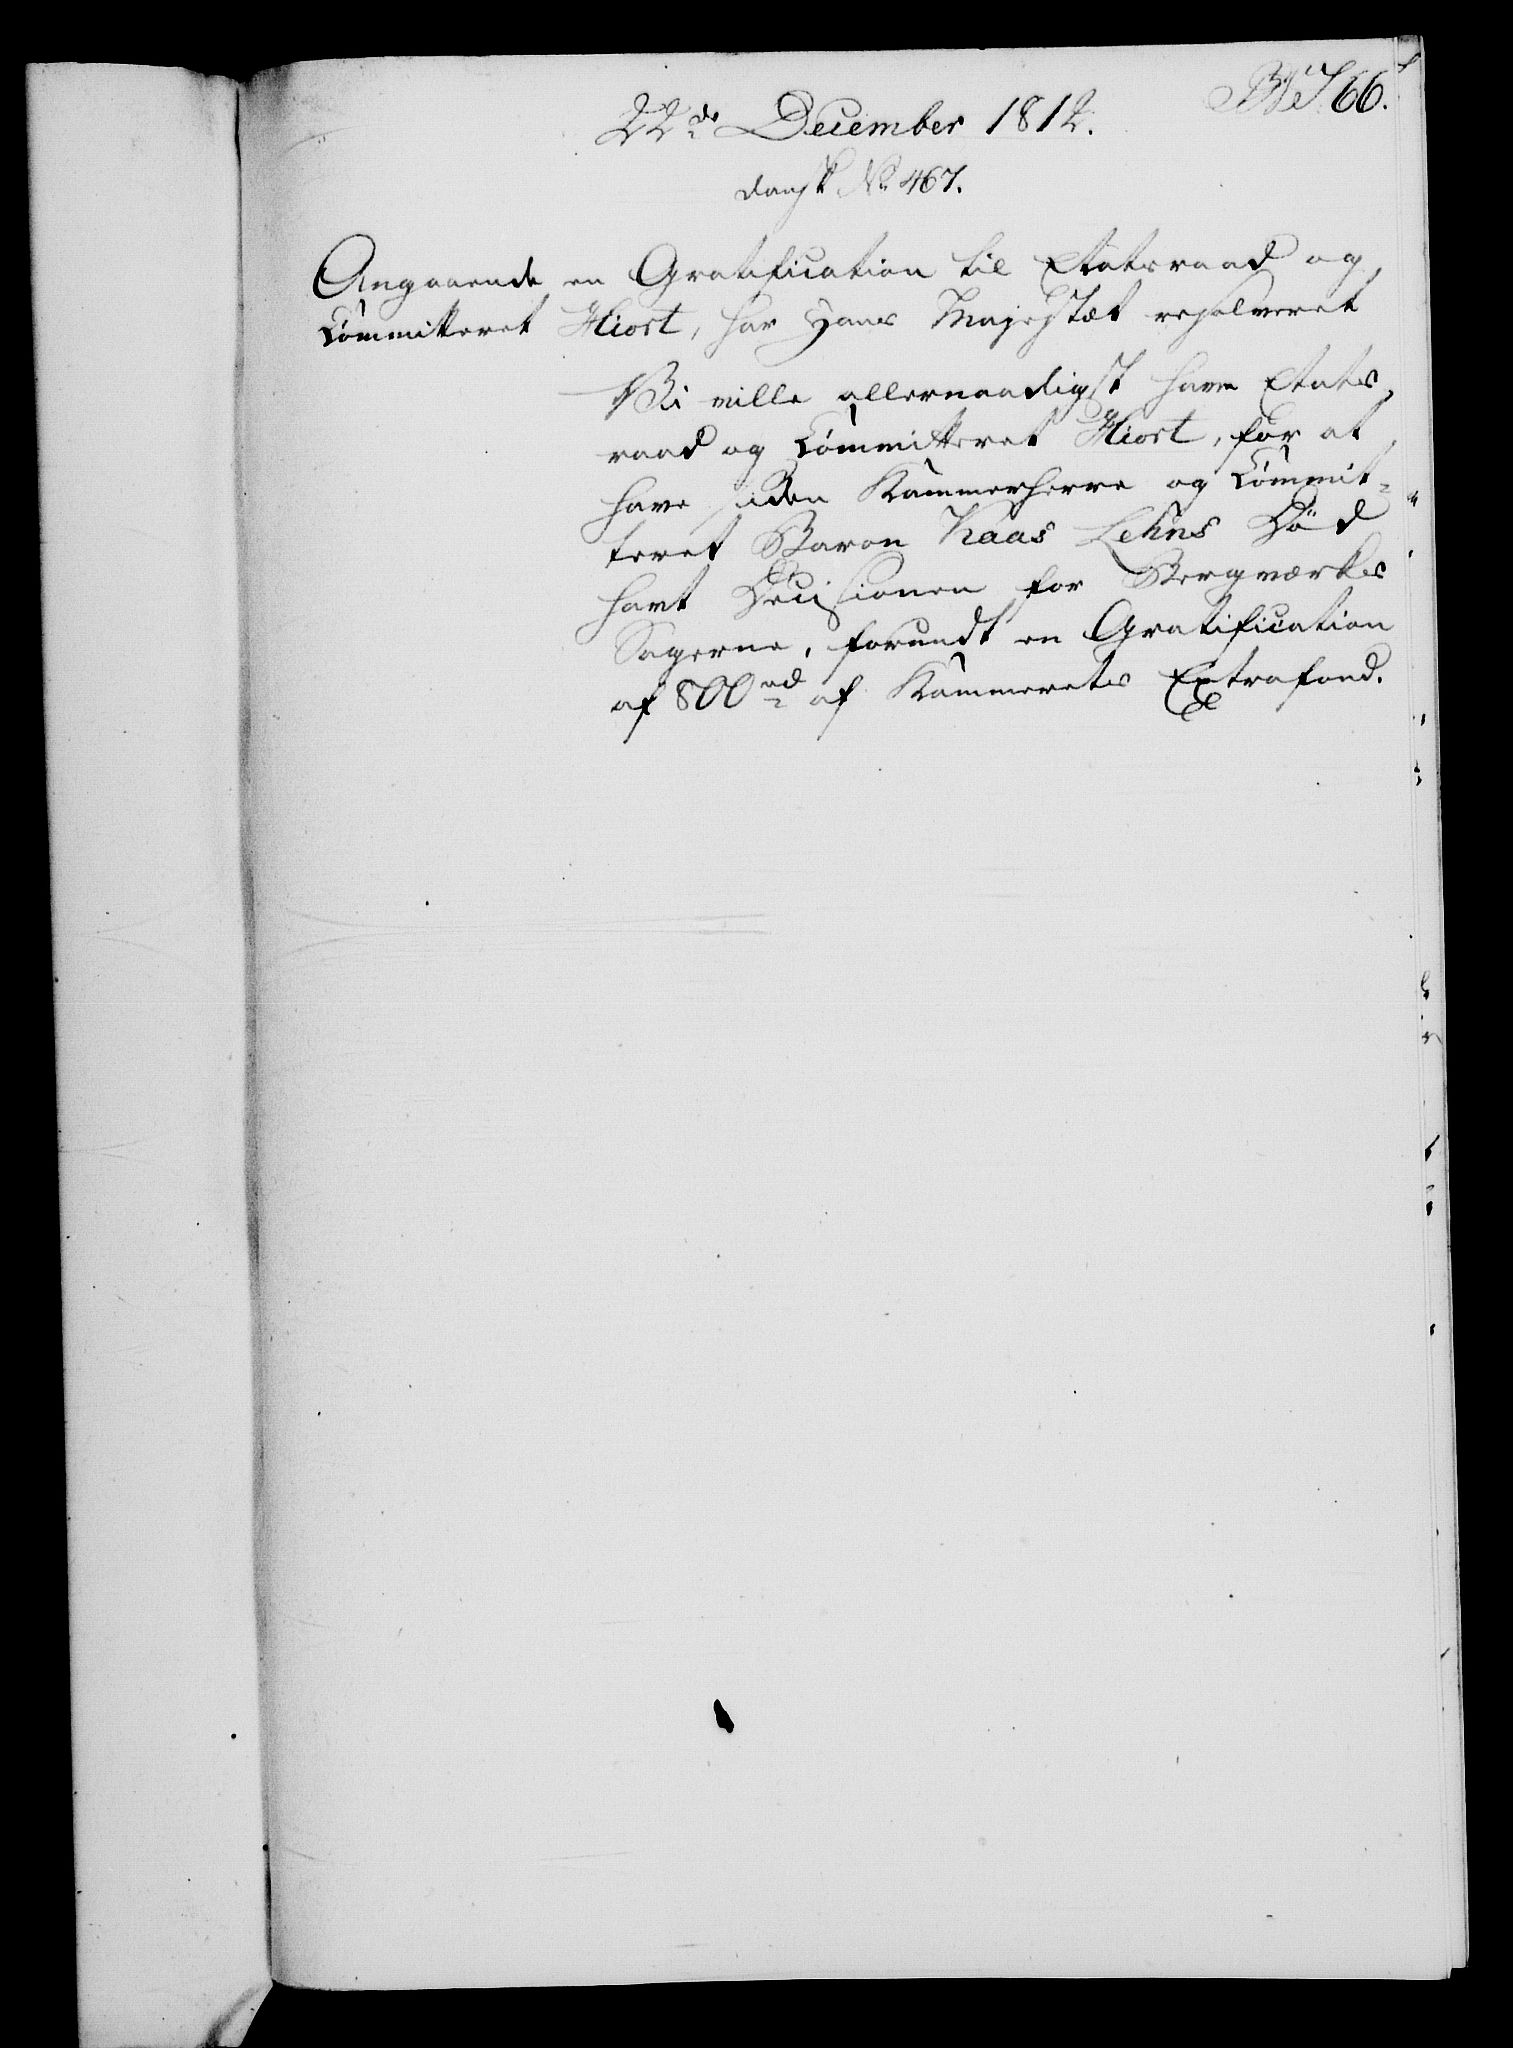 66.
22de December 1812.
dansk No 467.
Angaaende en Gratification til Etatsraad og
Committeret Hiort, har Hans Majestæt resolveret
Vi ville allernaadigst have Etats,
raad og Committeret Hiort, for at
have siden Kammerherre og Commit-
teret Baron Kaas Lehns Död
havt Decisionen for Bergværks
Sagerne, forundt en Gratification
af 800 rd af Kammerets Extrafond.